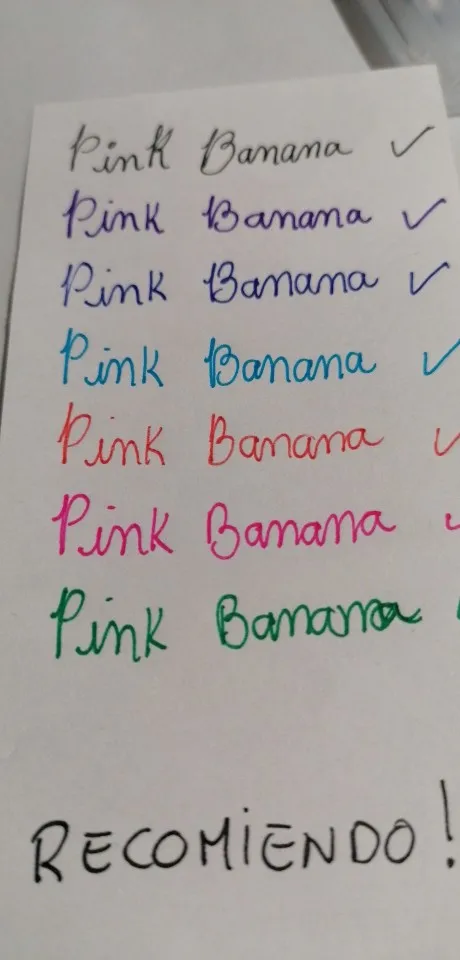 Pink Banana ✓
Pink Banana ✓
Pink Banana ✓
Pink Banana ✓
Pink Banana ✓
Pink Banana ✓
Pink Banana
RECOMiENDO!